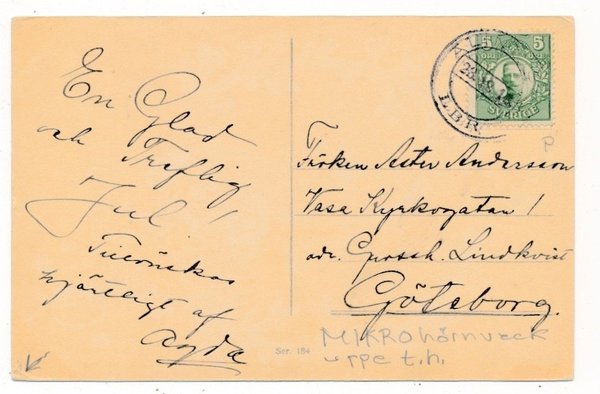 En Glad
och Treflig
Jul!
Tillönskas
hjärtligt af
Agda
5 5
SVERIGE
L.B.R.
Fröken Aster Andersson
Vasa Kyrkogatan 1
adr. Grossh. Lindkvist
Göteborg.
P
Ser. 184
MIKROhörnveck
uppe t.h.